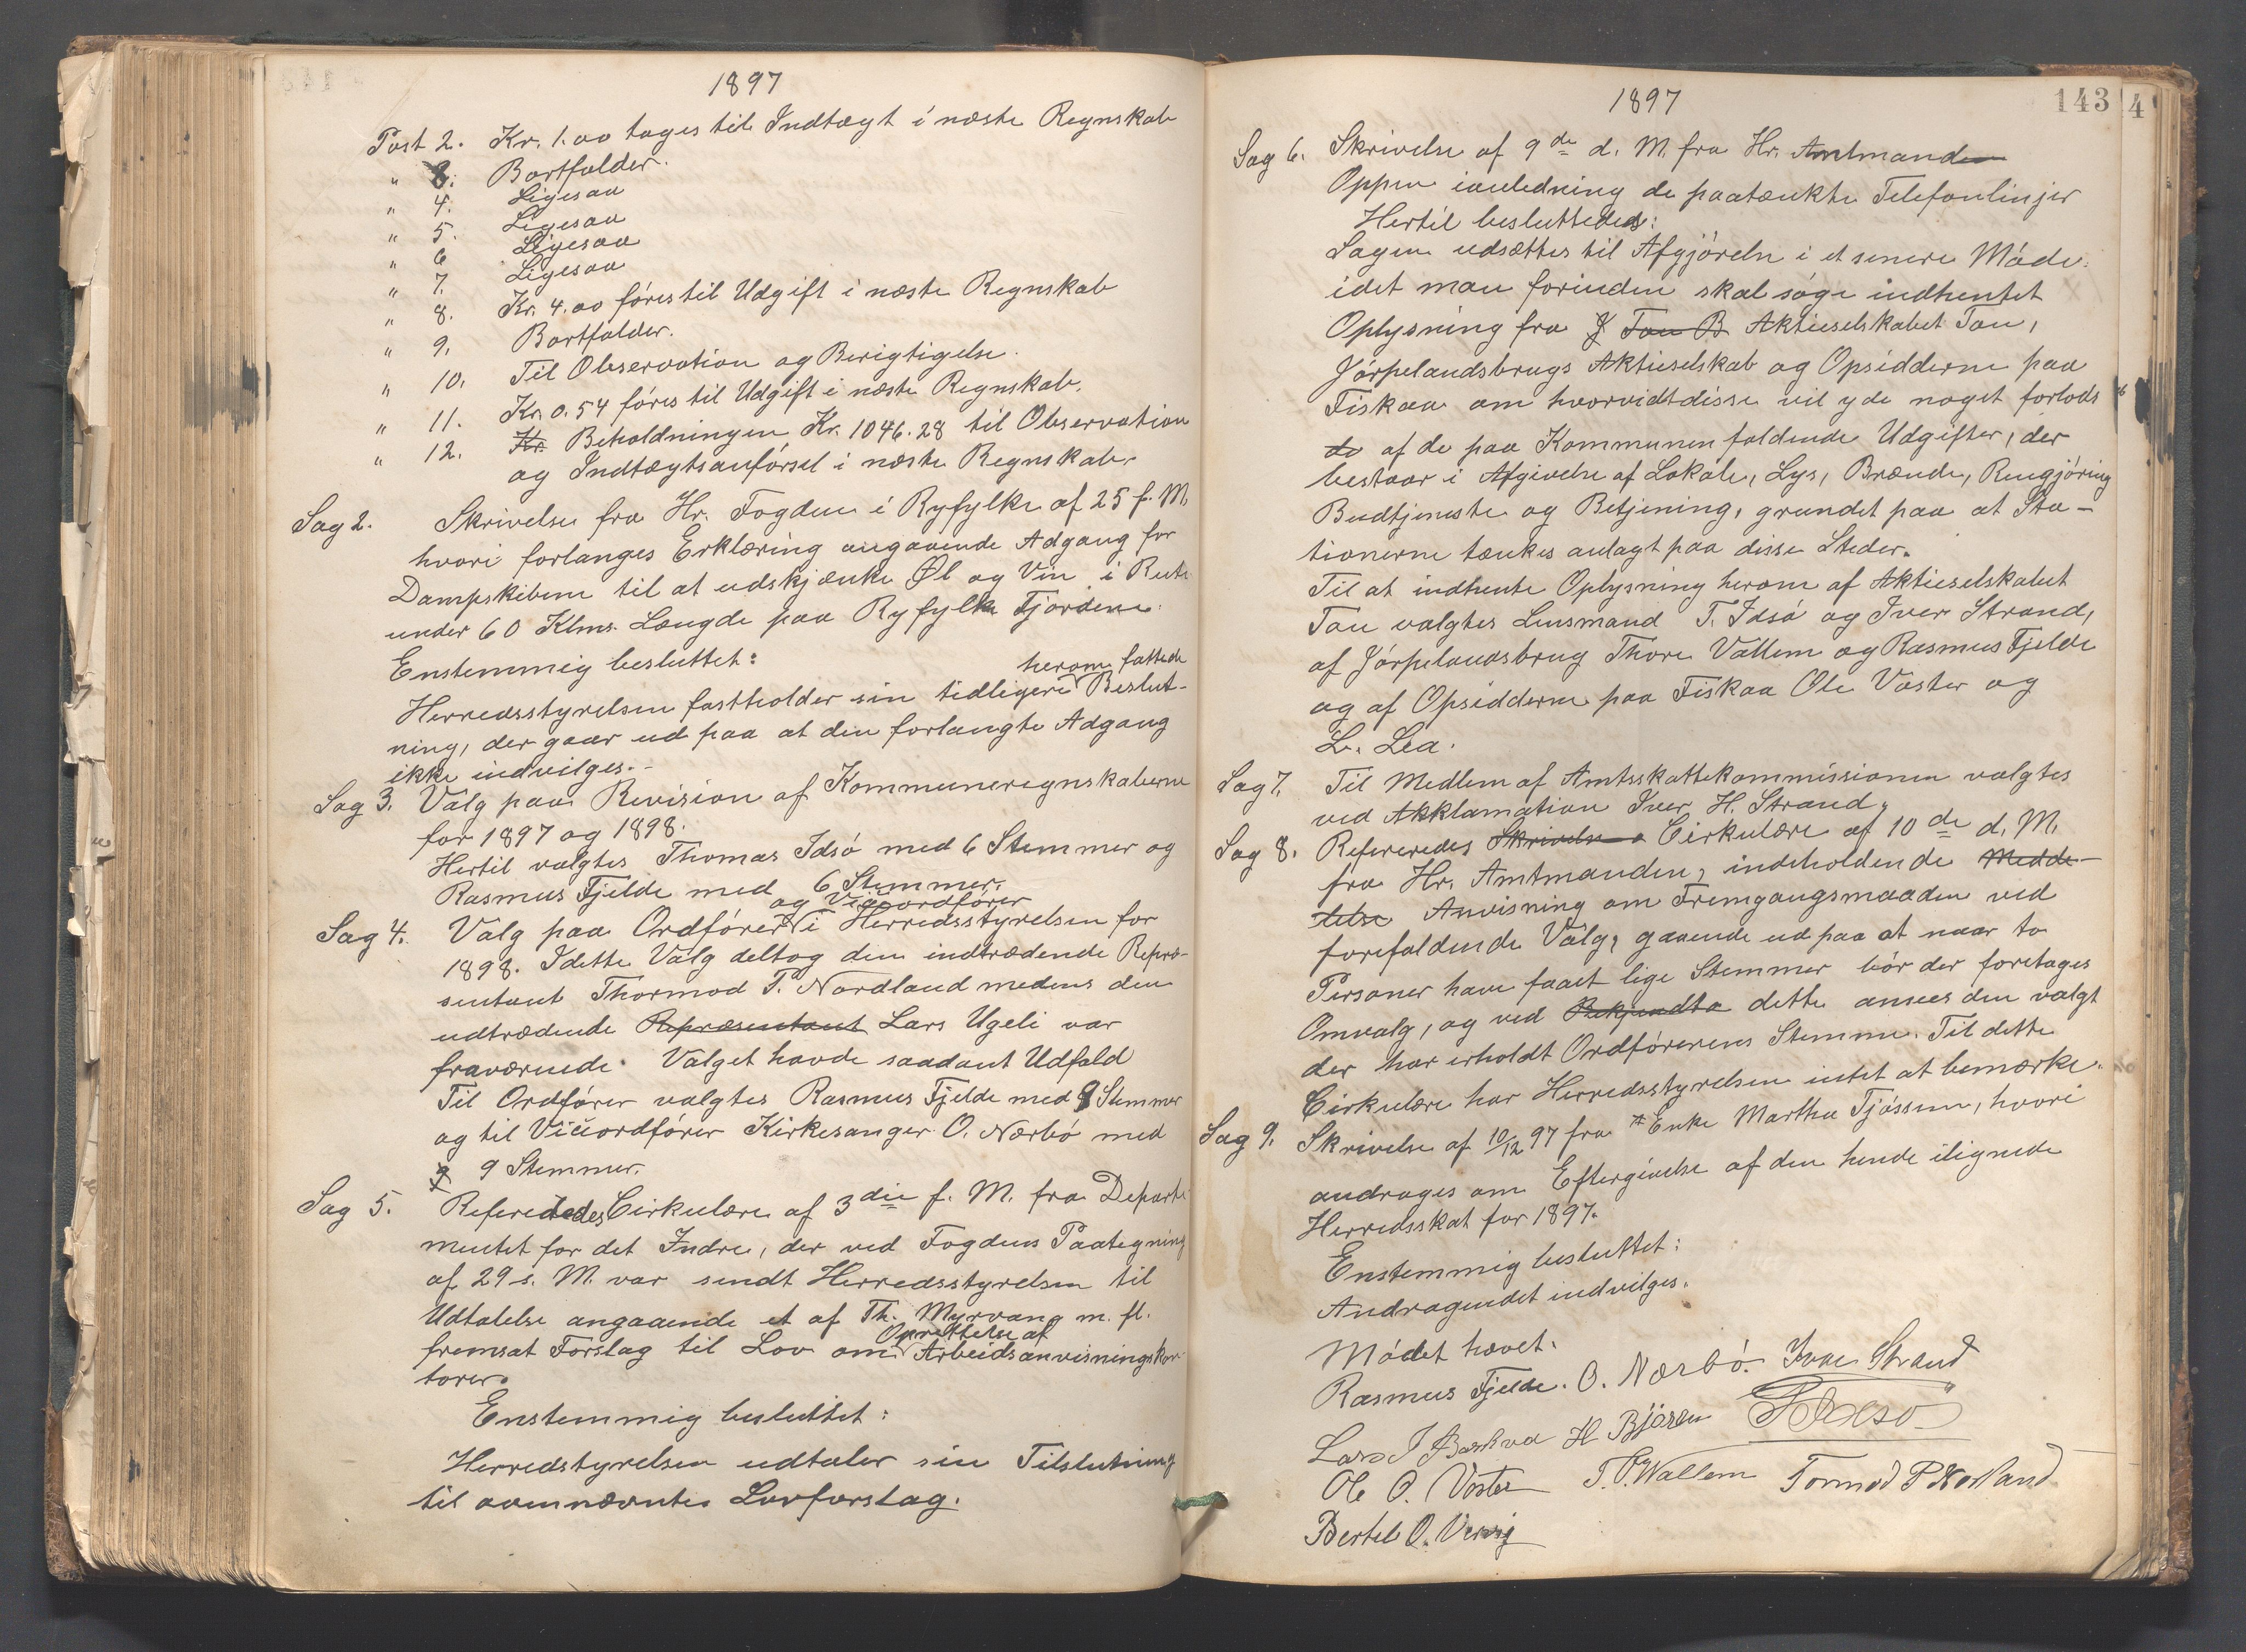 1897
Post 2. Kr. 1.00 tages til Indtægt i næste Regnskab
" 3. Bortfalder.
" 4. Ligesaa
" 5. Ligesaa
" 6 Ligesaa
" 7. Ligesaa
" 8. Kr. 4.00 føres til Udgift i næste Regnskab
" 9. Bortfalder.
" 10. Til Observation og Berigtigelse.
" 11. Kr. 0.54 føres til Udgift i næste Regnskab.
" 12. Kr. Beholdningen Kr. 1046.28 til Observation
og Indtægtsanførsel i næste Regnskab.
Sag 2. Skrivelse fra Hr. Fogden i Ryfylke af 25 f. M.
hvori forlanges Erklæring angaaende Adgang for
Dampskibene til at udskjænke Øl og Vin i Rute
under 60 Klms. Længde paa Ryfylke Fjordene.
Enstemmig besluttet:
Herredsstyrelsen fastholder sin tidligere herom fattede Beslut-
ning, der gaar ud paa at den forlangte Adgang
ikke indvilges.-
Sag 3. Valg paa Revision af Kommuneregnskaberne
for 1897 og 1898.
Hertil valgtes Thomas Idsø med 6 Stemmer og
Rasmus Fjelde med 6 Stemmer.
Sag 4. Valg paa Ordfører og Viceordfører i Herredsstyrelsen for
1898. I dette Valg deltog den indtrædende Repræ-
sentant Thormod P. Nordland medens den
udtrædende Repræsentant Lars Ugeli var
fraværende. Valget havde saadant Udfald
Til Ordfører valgtes Rasmus Fjelde med 9 Stemmer
og til Viceordfører Kirkesanger O. Nærbø med
9 Stemmer.
Sag 5. Refereredes Cirkulære af 3die f. M. fra Departe
mentet for det Indre, der ved Fogdens Paategning
af 29 s. M. var sendt Herredsstyrelsen til
Udtalelse angaaende et af Th. Myrvang m. fl.
fremsat Forslag til Lov om Oprettelse af Arbeidsanvisningskon-
torer.
Enstemmig besluttet:
Herredstyrelsen udtaler sin Tilslutning
til ovennævnte Lovforslag.
1897
143 4
Sag 6. Skrivelse af 9de d. M. fra Hr. Amtmanden
Oppen ianledning de paatænkte Telefonlinjer
Hertil besluttedes:
Sagen udsættes til Afgjørelse i et senere Møde.
idet man forinden skal søge indhentet
Oplysning fra J Tou B Aktieselskabet Tou,
Jørpelandsbrugs Aktieselskab og Opsidderne paa
Fiskaa om hvorvidt disse vil yde noget forlods
de af de paa Kommunen faldende Udgifter, der
bestaar i Afgivelse af Lokale, Lys, Brænde, Rengjøring
Budtjeneste og Betjening, grundet paa at Sta-
tionerne tænkes anlagt paa disse Steder.
Til at indhente Oplysning herom af Aktieselskabet
Tou valgtes Lensmand T. Idsø og Iver Strand,
af Jørpelandsbrug Thore Vallem og Rasmus Fjelde
og af Opsidderne paa Fiskaa Ole Voster og
L. Lea.
Sag 7. Til Medlem af Amtsskattekommissionen valgtes
ved Akklamation Iver H. Strand,
Sag 8. Refereredes Skrivelse a Cirkulære af 10de d. M.
fra Hr. Amtmanden, indeholdende Medde-
lelse Anvisning om Fremgangsmaaden ved
forefaldende Valg, gaaende ud paa at naar to
Personer have faaet lige Stemmer bør der foretages
Omvalg, og ved dette ansees den valgt
der har erholdt Ordførerens Stemme. Til dette
Cirkulære har Herredsstyrelsen intet at bemærke.
Sag 9. Skrivelse af 10/12 97 fra Enke Martha Tjøssem, hvori
andrages om Eftergivelse af den hende ilignede
Herredsskat for 1897.
Enstemmig besluttet:
Andragendet indvilges.
Mødet hævet.
Rasmus Fjelde. O. Nærbø. Iver Strand
Lars J H. Bjøren
Ole O. Voster T. T. Wallem Tormod P Norland
Bertel O.